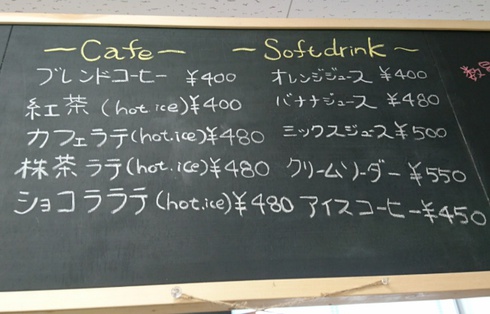 ーCafeー
ブレンドコーヒー ¥400
紅茶(hot.ice)¥400
カフェラテ(hot.ice)¥480
株茶ラテ(hot.ice)¥480
ショコララテ(hot.ice)¥480
ーSoftdrink〜
オレンジジュース ¥400
バナナジュース ¥480
ミックスジュース¥500
クリームソーダー ¥550
アイスコーヒー¥450